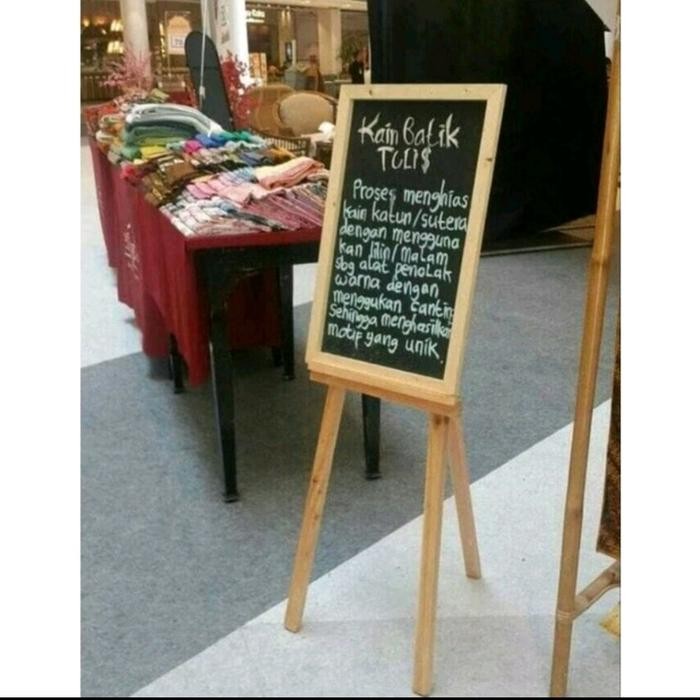 Kain Batik
TULIS
Proses menghias
kain katun/sutera
dengan mengguna
kan lilin/malam
sbg alat penolak
warna dengan
menggukan canting
Sehingga menghasilkan
motif yang unik.